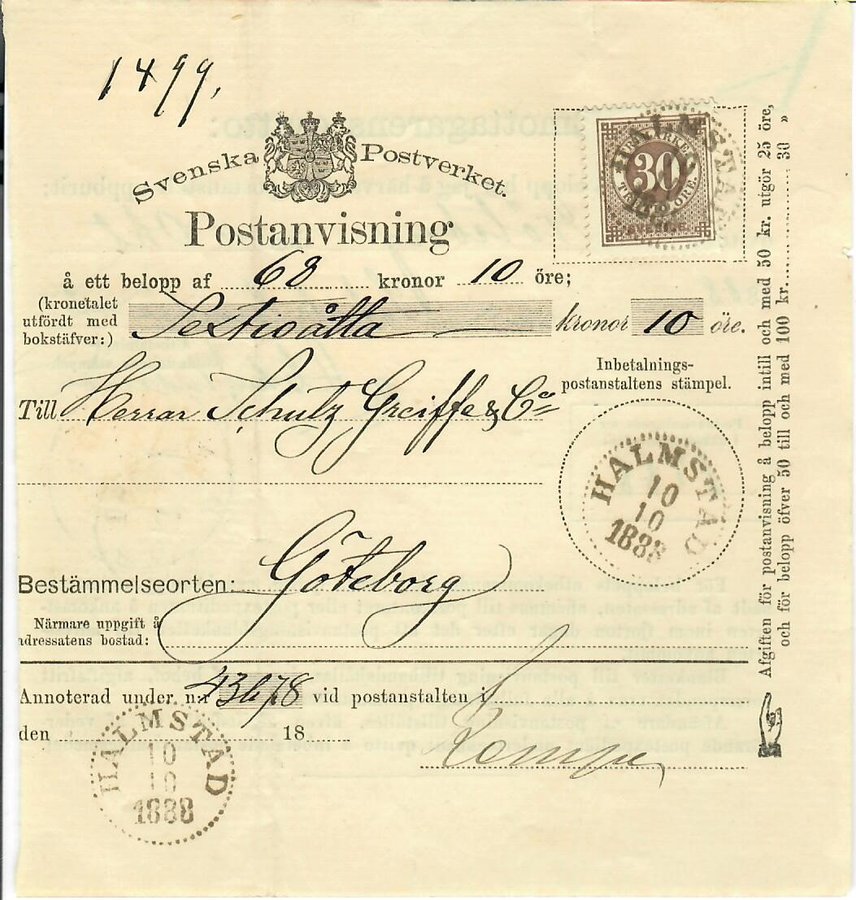 1499.
Svenska Postverket.
Postanvisning
å ett belopp af 68 kronor 10 öre;
(kronetalet
utfördt med
bokstäfver:)
Sextioåtta kronor 10 öre.
Till Herrar Schutz Greiffe & Co
Inbetalnings-
postanstaltens stämpel.
HALMSTAD
10
10
1888
Bestämmelseorten: Göteborg
Närmare uppgift å
adressatens bostad:
Annoterad under n:r 43678 vid postanstalten i
den 18
HALMSTAD
10
10
1888
30
TRETTIO ÖRE
SVERIGE
HALMSTAD
Afgiften för postanvisning å belopp intill och med 50 kr. utgör 25 öre,
och för belopp öfver 50 till och med 100 kr. 30 »